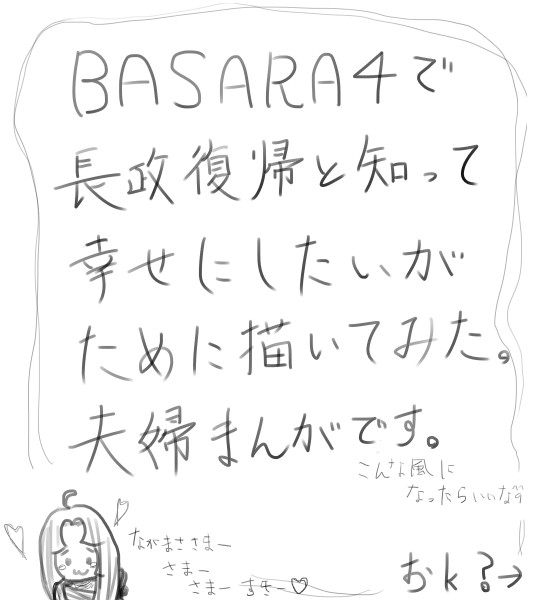 BASARA4で
長政復帰と知って
幸せにしたいが
ために描いてみた。
夫婦まんがです。
こんな風に
なったらいいなぁ
ながまささまー
さまー
さまー すきー♡
おk?→